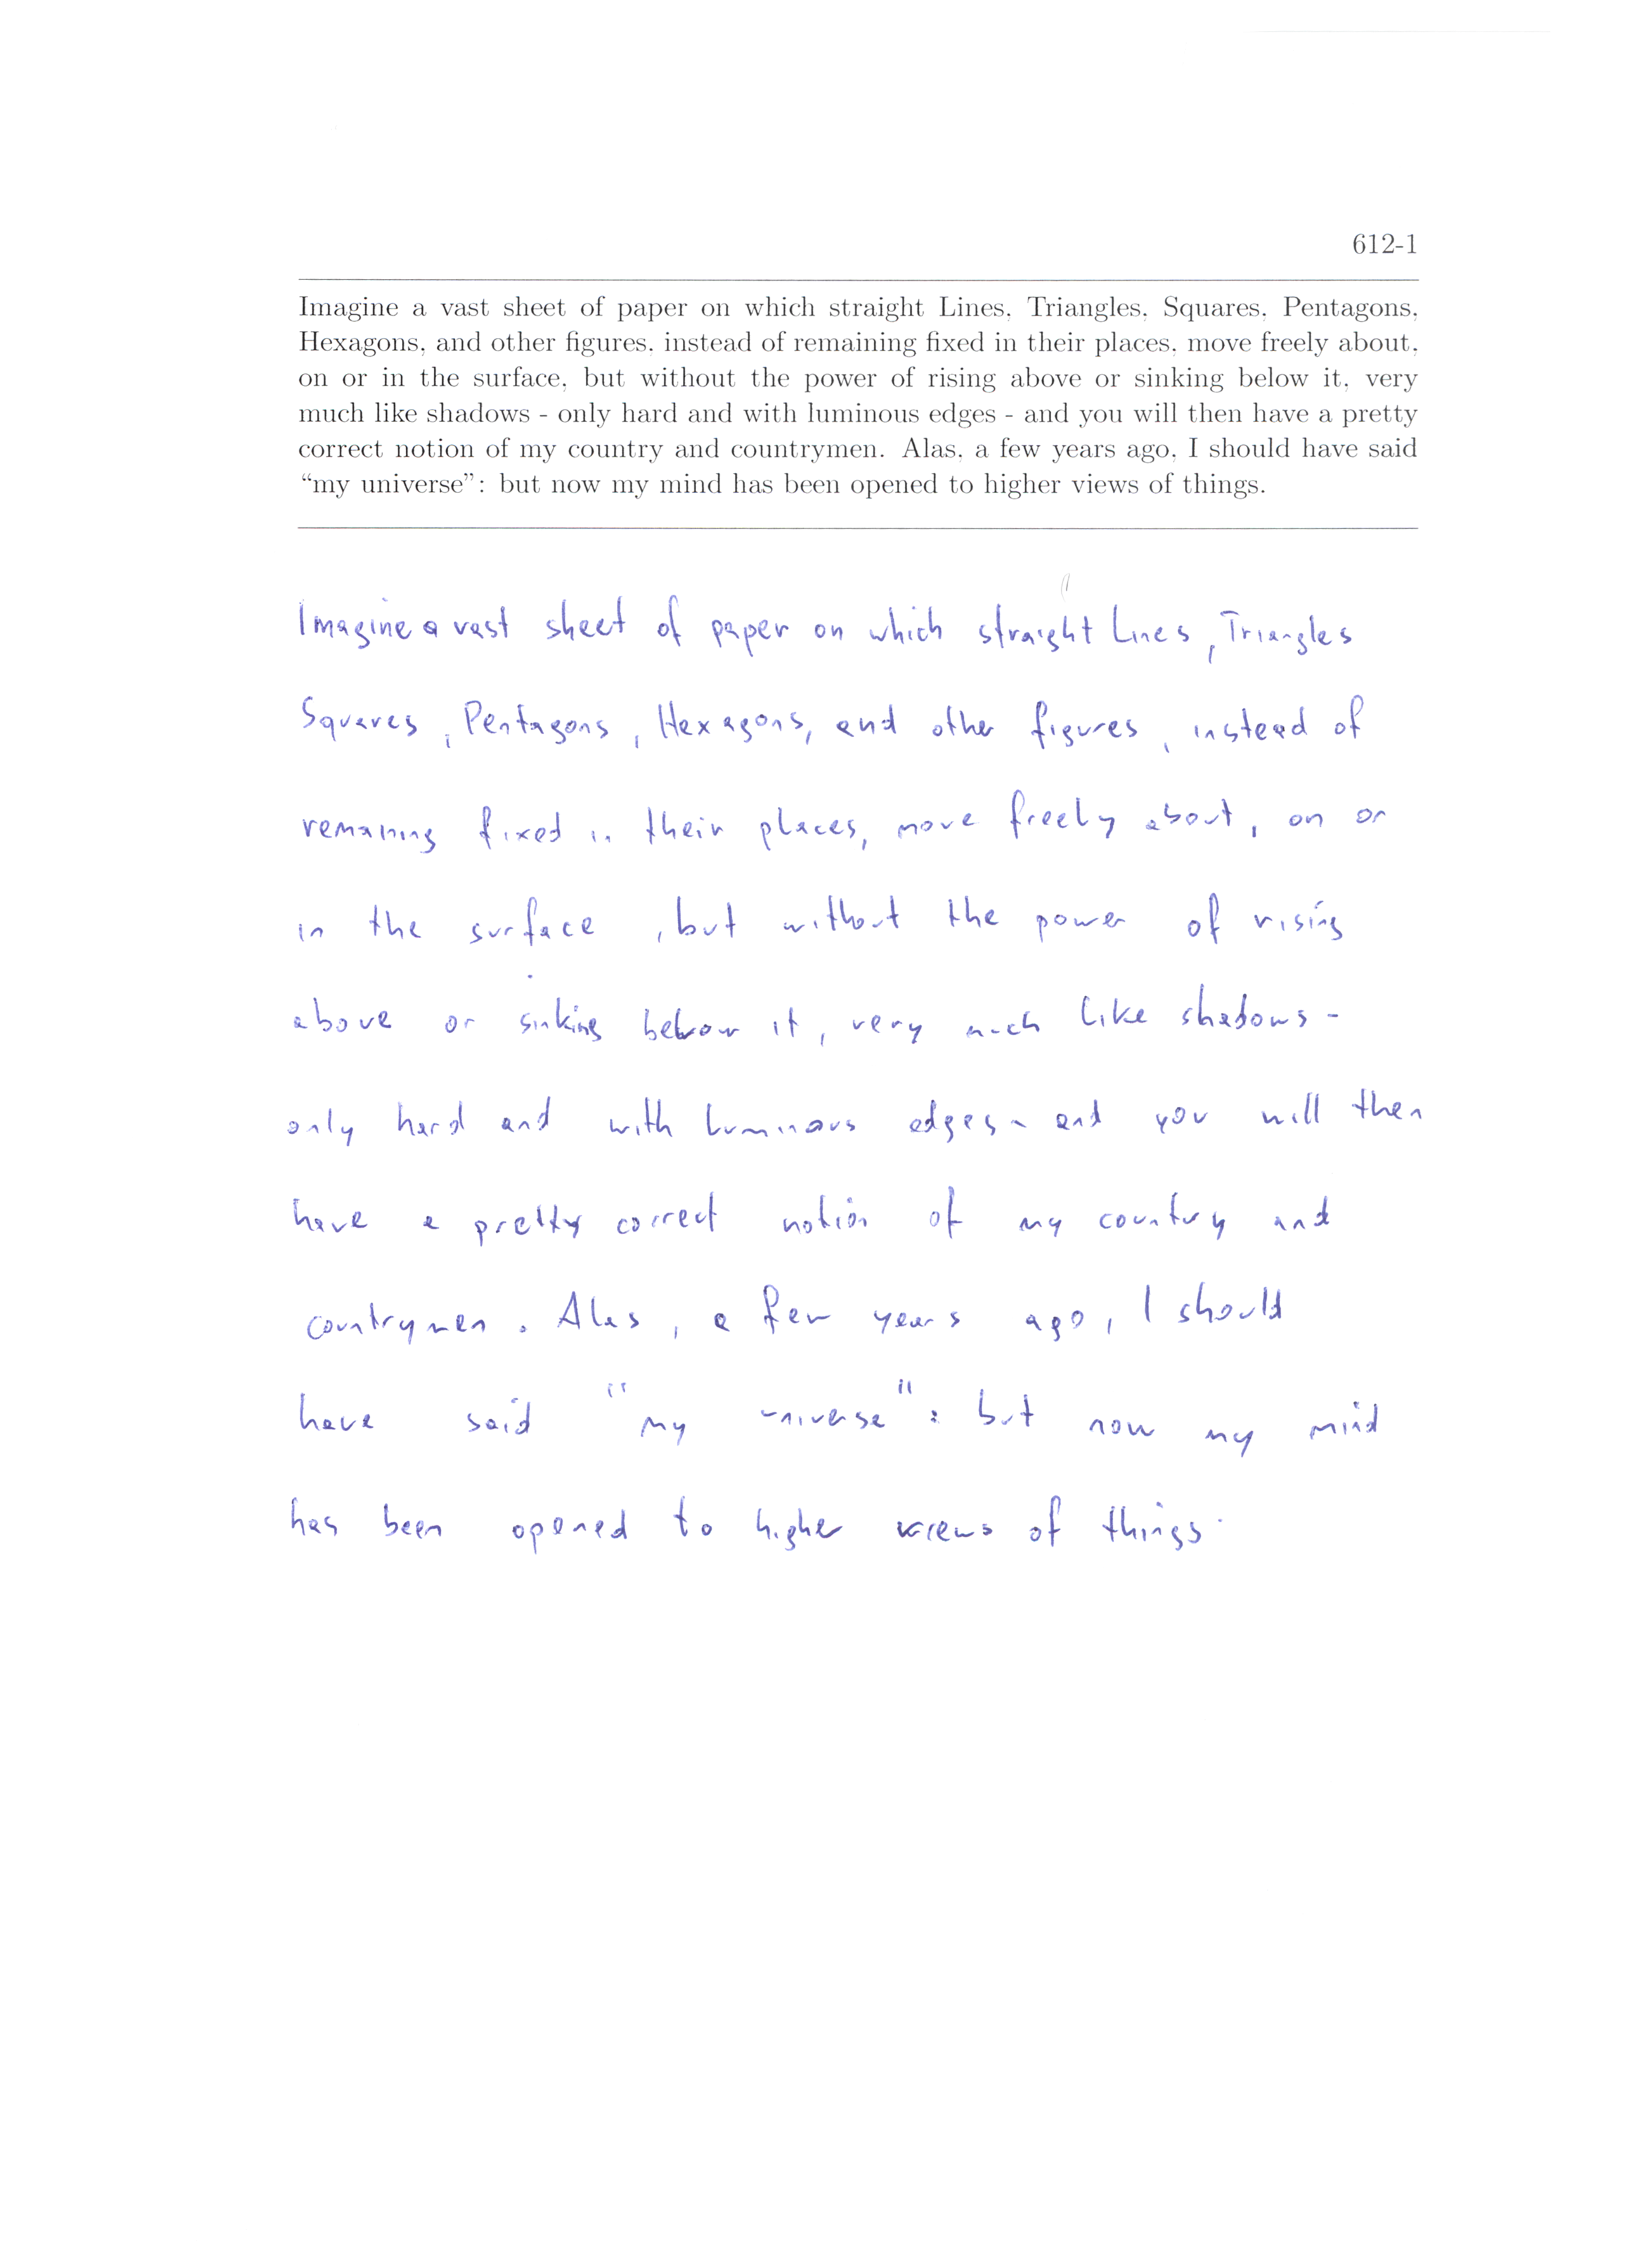 612-1
Imagine a vast sheet of paper on which straight Lines, Triangles, Squares, Pentagons,
Hexagons, and other figures, instead of remaining fixed in their places, move freely about,
on or in the surface, but without the power of rising above or sinking below it, very
much like shadows - only hard and with luminous edges - and you will then have a pretty
correct notion of my country and countrymen. Alas, a few years ago, I should have said
“my universe”: but now my mind has been opened to higher views of things.
Imagine a vast sheet of paper on which straight Lines, Triangles
Squares, Pentagons, Hexagons, and other figures, instead of
remaining fixed in their places, move freely about, on or
in the surface, but without the power of rising
above or sinking below it, very much like shadows -
only hard and with luminous edges - and you will then
have a pretty correct notion of my country and
countrymen. Alas, a few years ago, I should
have said "my universe": but now my mind
has been opened to higher views of things.